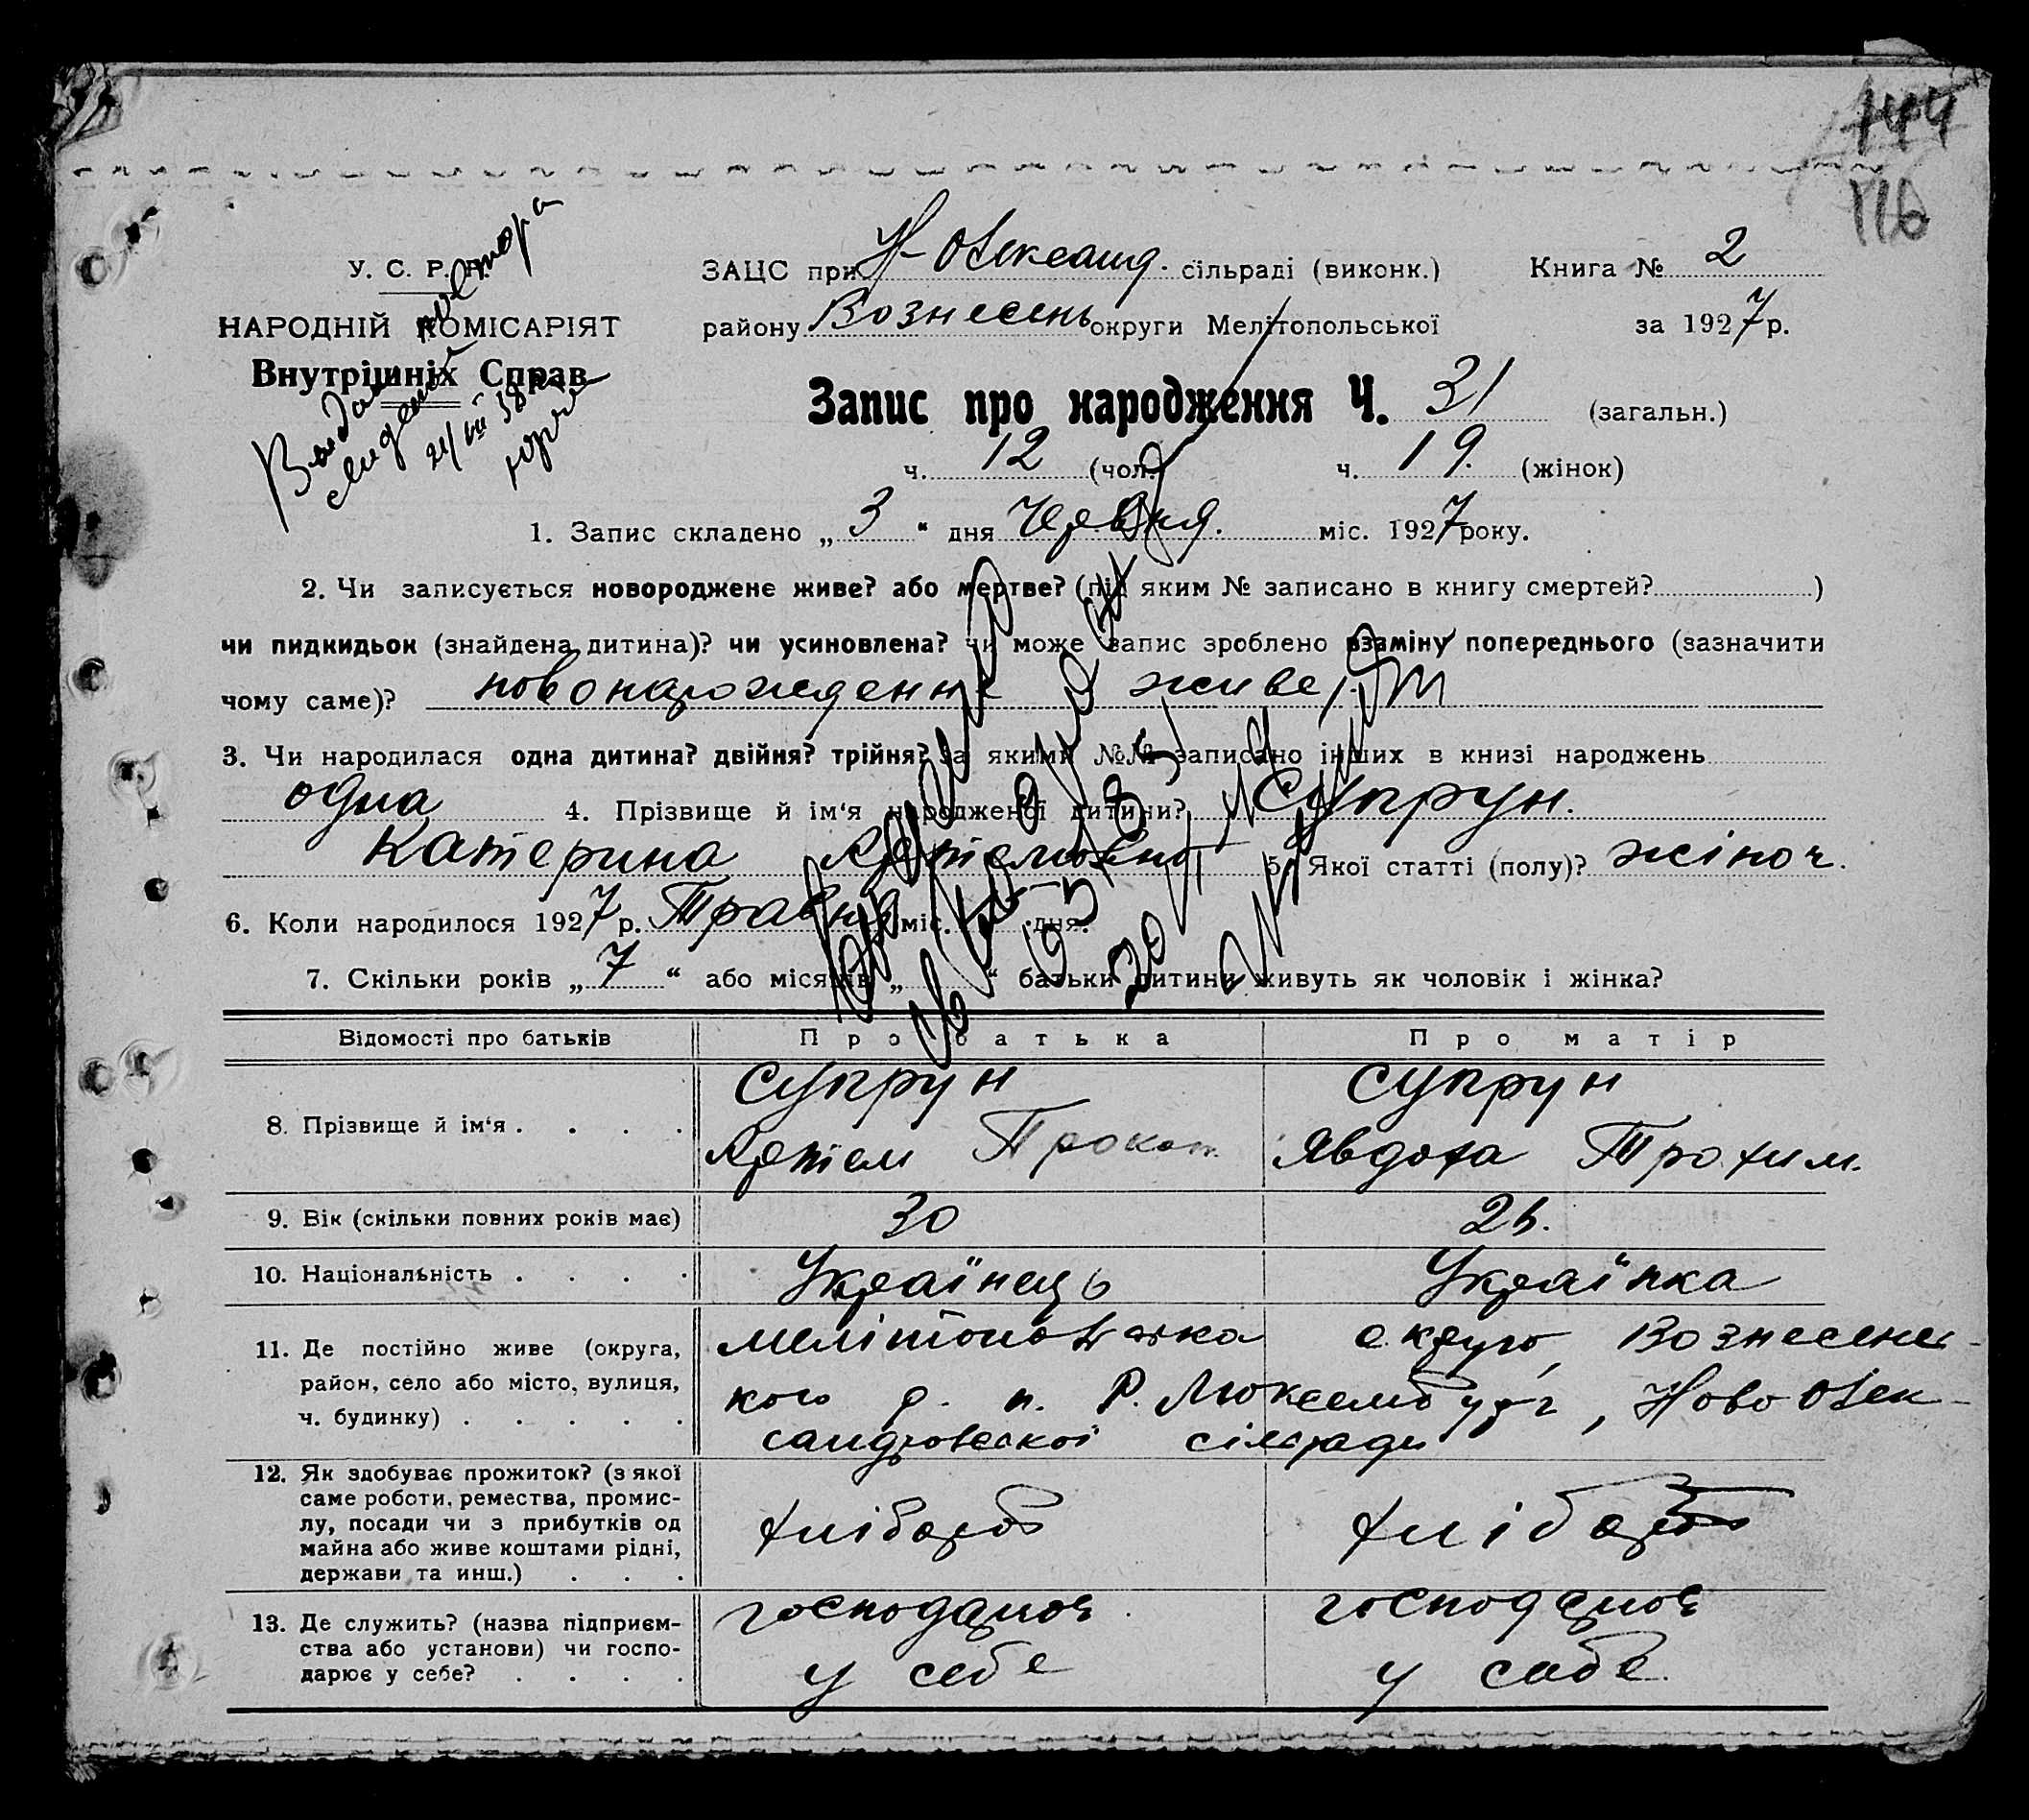 144
116
У. С. Р. Р.
НАРОДНІЙ КОМІСАРІЯТ
Внутрішніх Справ
ЗАЦС при Н-Олександ. сільраді (виконк.) Книга № 2
району Вознесень округи Мелітопольської за 1927 р.
Запис про народження Ч. 31 (загальн.)
ч. 12 (чол.) ч. 19. (жінок)
1. Запис складено „ 3 “ дня Червня. міс. 1927 року.
2. Чи записується новороджене живе? або мертве? (під яким № записано в книгу смертей? )
чи пидкидьок (знайдена дитина)? чи усиновлена? чи може запис зроблено взаміну попереднього (зазначити
чому саме)? живе
3. Чи народилася одна дитина? двійня? трійня? За якими №№ записано інших в книзі народжень
одна 4. Прізвище й ім‘я народженої дитини? Супрун.
Катерина Артемовна 5. Якої статті (полу)? жіноч.
6. Коли народилося 1927 р. Травня міс. дня.
7. Скільки років „ 7 “ або місяців „ “ батьки дитини живуть як чоловік і жінка?
Відомості про батьків Про батька Про матір
8. Прізвище й ім‘я . . . . Супрун Супрун
Артем Прокоп. Явдоха Трохим.
9. Вік (скільки повних років має) 30 25.
10. Національність . . . . Українець Українка
11. Де постійно живе (округа,
район, село або місто, вулиця,
ч. будинку) . . . . .
Мелітопольська округа, Вознесенс-
кого р. п. Р. Люксембург, Ново Олек-
сандровської сільради
12. Як здобуває прожиток? (з якої
саме роботи, ремества, промис-
лу, посади чи з прибутків од
майна або живе коштами рідні,
держави та инш.) . . .
хлібороб хлібороб
13. Де служить? (назва підприєм-
ства або установи) чи госпо-
дарює у себе? . . . .
господарює господарює
у себе у себе